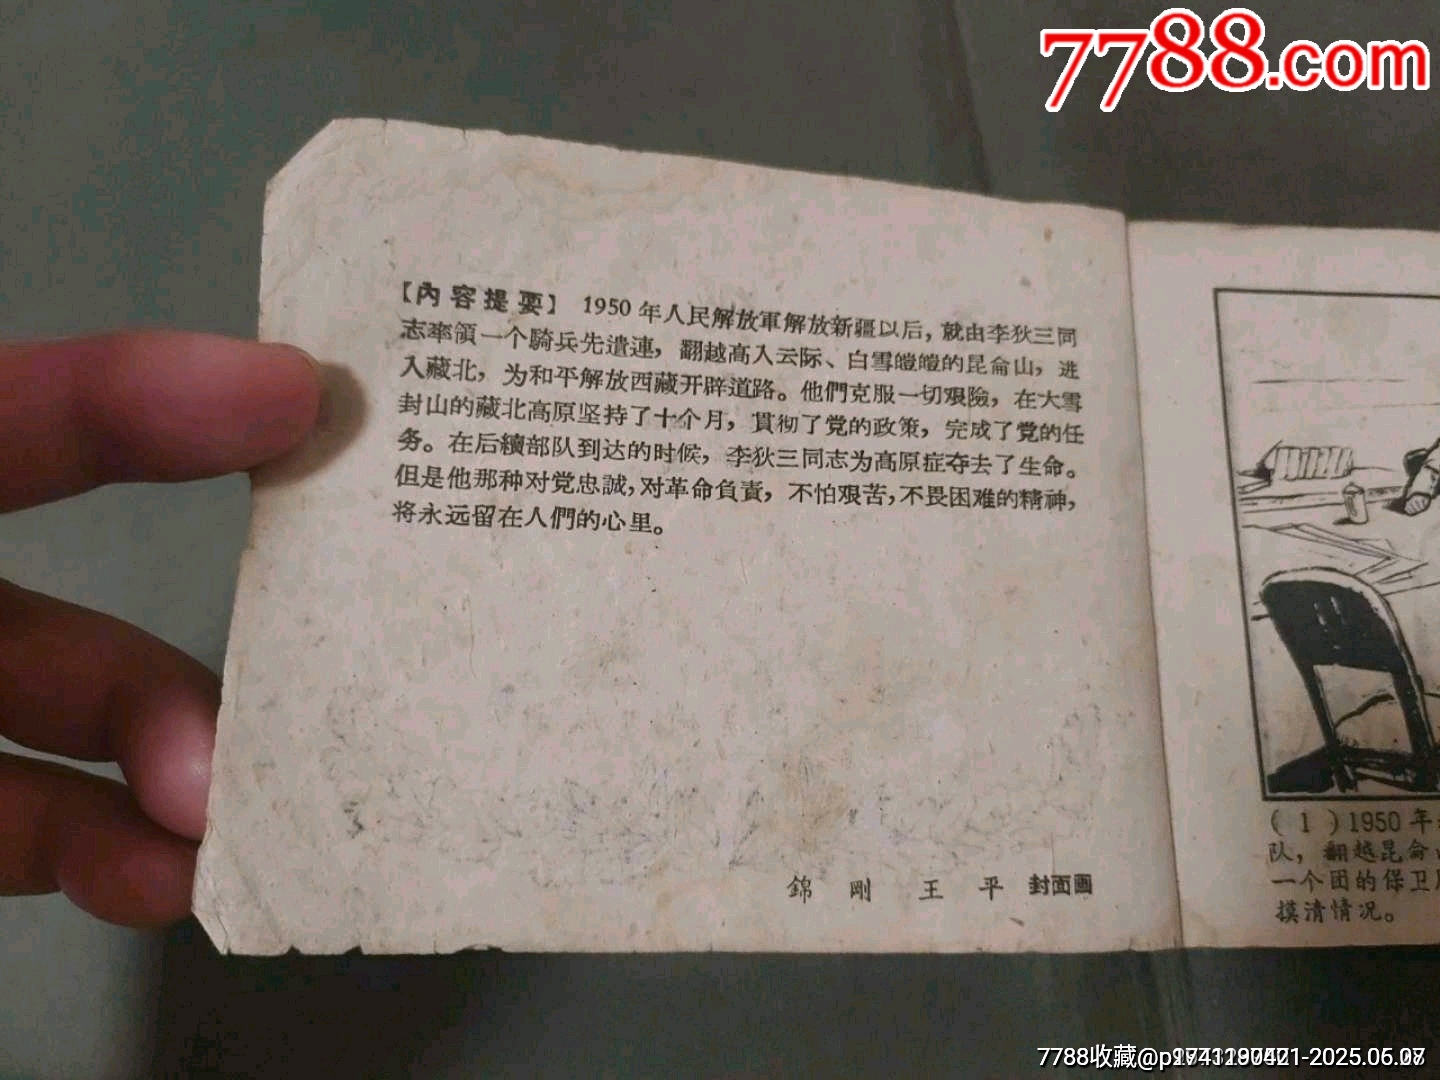 7788.com
【內容提要】 1950年人民解放軍解放新疆以后，就由李狄三同
志率領一个騎兵先遣連，翻越高入云际、白雪皚皚的昆侖山，进
入藏北，为和平解放西藏开辟道路。他們克服一切艰險，在大雪
封山的藏北高原坚持了十个月，貫彻了党的政策，完成了党的任
务。在后續部队到达的时候，李狄三同志为高原症夺去了生命。
但是他那种对党忠誠，对革命負責，不怕艰苦，不畏困难的精神，
将永远留在人們的心里。
錦 剛 王 平 封面画
( 1 )1950年
队，翻越昆侖
一个团的保卫
摸清情况。
7788收藏@p
-2025.05.07